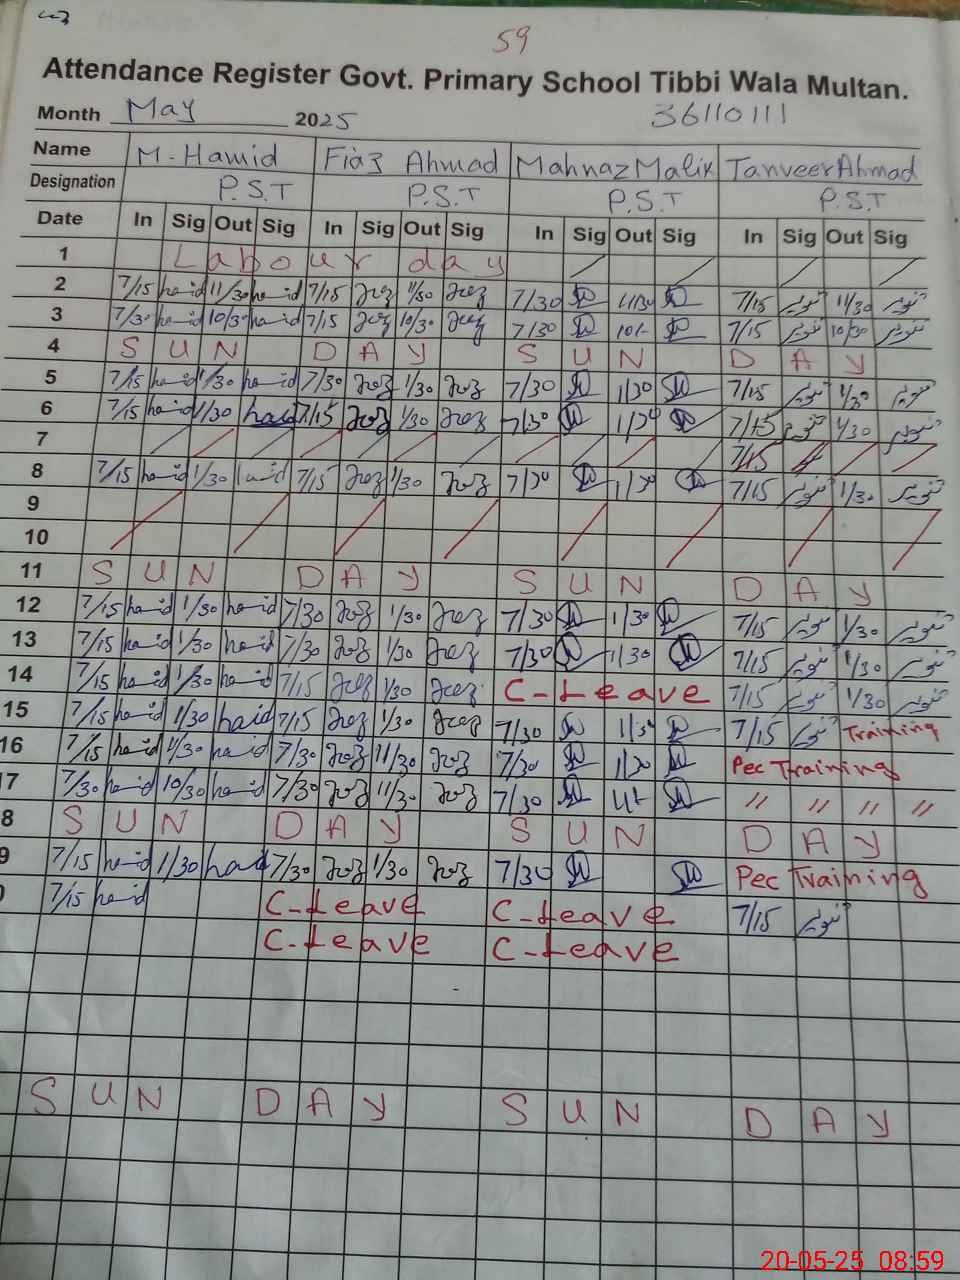 59
Attendance Register Govt. Primary School Tibbi Wala Multan.
Month May 2025 36110111
Name M. Hamid Fiaz Ahmad Mahnaz Malik Tanveer Ahmad
Designation P.S.T P.S.T P.S.T P.S.T
Date In Sig Out Sig In Sig Out Sig In Sig Out Sig In Sig Out Sig
1 Labour day
2 7/15 hamid 11/30 hamid 7/15 11/30 7/30 11/30 7/15 تنویر 11/30 تنویر
3 7/30 hamid 10/30 hamid 7/15 10/30 7/30 10/- 7/15 تنویر 10/30 تنویر
4 SUN DAY SUN DAY
5 7/15 hamid 1/30 hamid 7/30 1/30 7/30 1/30 7/15 تنویر 1/30 تنویر
6 7/15 hamid 1/30 hamid 7/15 1/30 7/30 1/30 7/15 تنویر 1/30 تنویر
7 7/15
8 7/15 hamid 1/30 hamid 7/15 1/30 7/30 1/30 7/15 تنویر 1/30 تنویر
9
10
11 SUN DAY SUN DAY
12 7/15 hamid 1/30 hamid 7/30 1/30 7/30 1/30 7/15 تنویر 1/30 تنویر
13 7/15 hamid 1/30 hamid 7/30 1/30 7/30 1/30 7/15 تنویر 1/30 تنویر
14 7/15 hamid 1/30 hamid 7/15 1/30 C-Leave 7/15 تنویر 1/30 تنویر
15 7/15 hamid 1/30 hamid 7/15 1/30 7/30 1/30 7/15 تنویر Training
16 7/15 hamid 1/30 hamid 7/30 11/30 7/30 1/30 Pec Training
7 7/30 hamid 10/30 hamid 7/30 11/30 7/30 " " " "
8 SUN DAY SUN DAY
9 7/15 hamid 1/30 hamid 7/30 1/30 7/30 Pec Training
7/15 hamid C-Leave C-Leave 7/15 تنویر
C-Leave C-Leave
SUN DAY SUN DAY
20-05-25 08:59